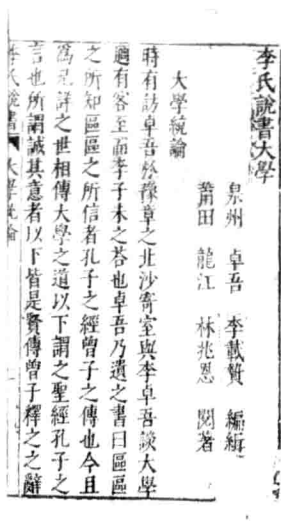 李氏說書大學
泉州 卓吾 李載贄 編緝
莆田 龍江 林兆恩 閱著
大學統論
時有訪卓吾於豫章之北沙寄室與李卓吾談大學
適有客至而李子未之荅也卓吾乃遺之書曰區區
之所知區區之所信者孔子之經曾子之傳也今且
爲孔詳之世相傳大學之道以下謂之聖經孔子之
言也所謂誠其意者以下皆是賢傳曾子釋之之辭
李氏說書 大學統論